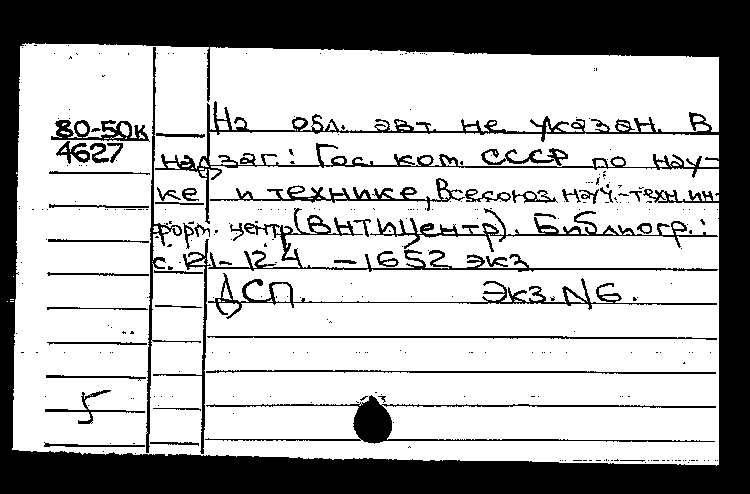 80-50к
4627
На обл. авт. не указан. В
надзаг.: Гос. ком. СССР по нау-
ке и технике, Всесоюз. науч.-техн. ин-
форм. центр (ВНТИЦентр). Библиогр.:
с. 121-124. - 1652 экз.
ДСП. Экз. N6.
5